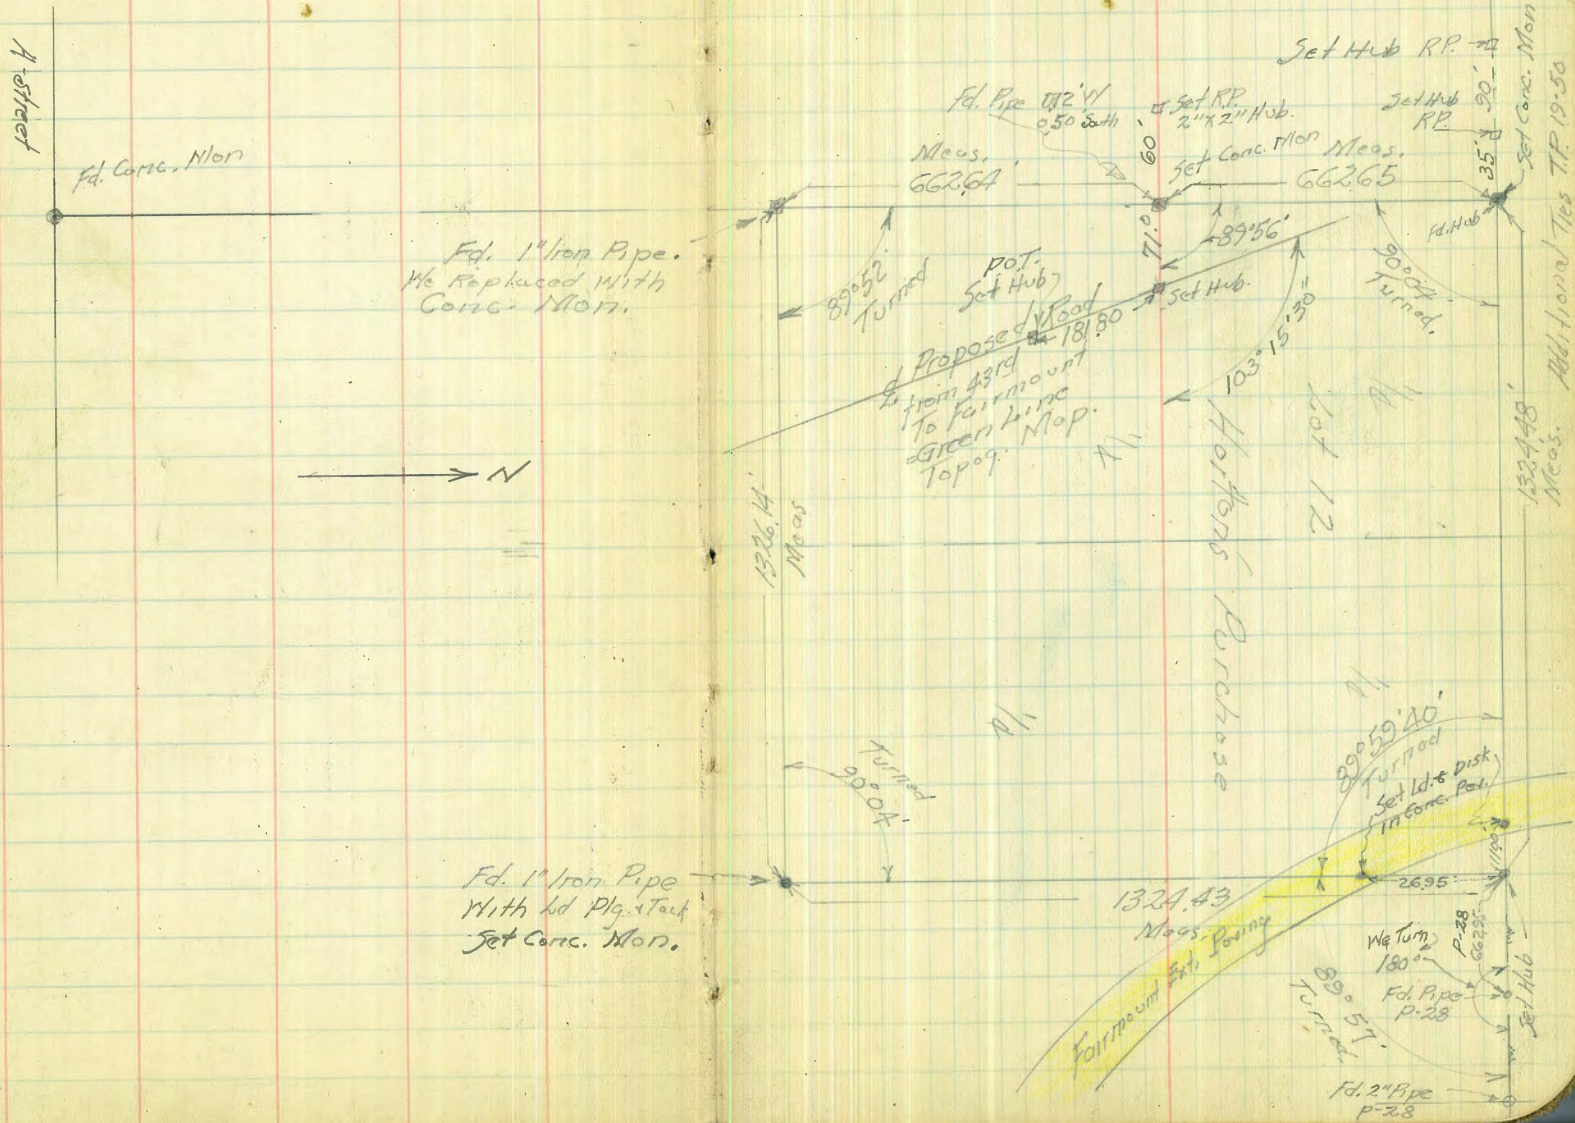 A Street
Fd. Conc. Mon
Fd. 1" Iron Pipe.
We Replaced With
Conc. Mon.
N
Fd. 1" Iron Pipe
With Ld Plg. & Tack
Set Conc. Mon.
Set Hub R.P.
Fd. Pipe 0.12' W
0.50 South
Set R.P.
2" x 2" Hub.
Set Hub
R.P.
90'
35'
Set Conc. Mon
Additional Ties T.P. 19-50
Meas.
662.64
60'
Set Conc. Mon
Meas.
662.65
Fd. Hub
71.0'
89°56'
Set Hub.
89°52'
Turned
P.O.T.
Set Hub
90°04'
Turned.
103°15'30"
181.80
Proposed Road
from 43rd
To Fairmount
=Green Line
Topog. Map.
1/4
1/4
Lot 12
Hortons Purchase
1326.14
Meas
1324.48
Meas.
1/4
1/4
Turned
90°04'
89°59'40"
Turned
Set Ld. & Disk
in Conc. Pav.
11.00
26.95
1324.43
Meas.
Fairmount Ext. Paving
We Turn
180°
P-28
662.95
Fd. Pipe
P-28
Set Hub
89°57'
Turned.
Fd. 2" Pipe
P-28